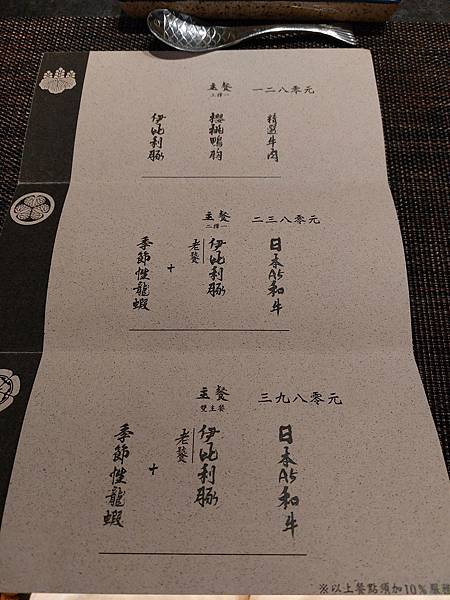 主餐 一二八零元
三擇一
精選牛肉
櫻桃鴨胸
伊比利豚
主餐 二三八零元
二擇一
日本A5和牛
伊比利豚
老饕
+
季節性龍蝦
主餐 三九八零元
雙主餐
日本A5和牛
伊比利豚
老饕
+
季節性龍蝦
※以上餐點須加10%服務